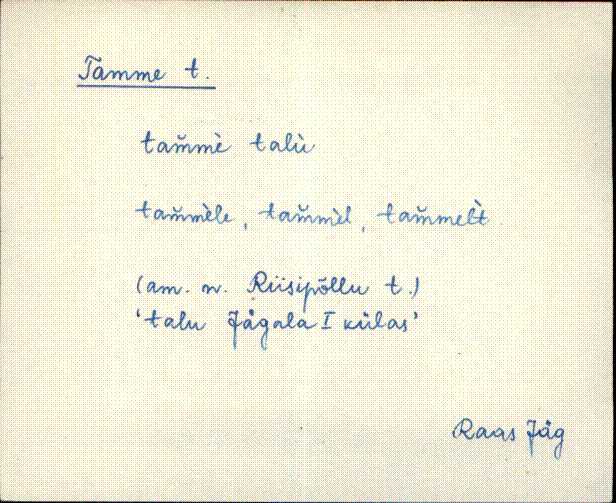 Tamme t.
tam̆mè talù
tam̆mèle, tam̆mèl, tam̆mel̀t
(am. n. Riisipõllu t.)
‘talu Jägala I külas’
Raas Jäg